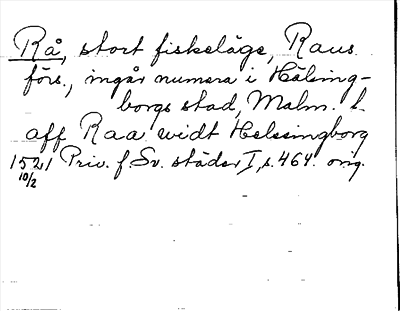 Rå, stort fiskeläge, Raus
förs., ingår numera i Hälsing-
borgs stad, Malm. l.
aff Raa widt Helssingborg
1521 Priv. f. Sv. städer I, s. 464. orig.
10/2